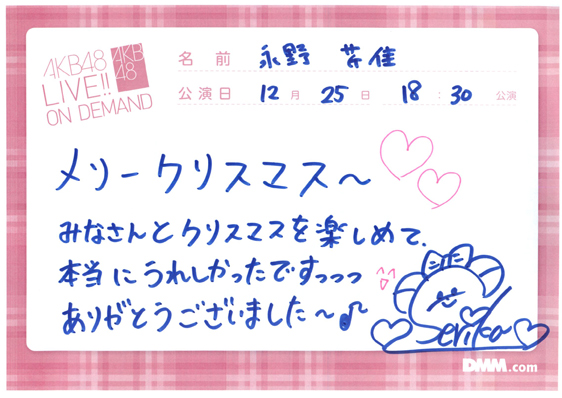 AKB48
LIVE!!
ON DEMAND
AKB
48
名前 永野 芹佳
公演日 12月 25日 18:30 公演
メリークリスマス〜
みなさんとクリスマスを楽しめて、
本当にうれしかったですっっっ
ありがとうございました〜♪
Serika
DMM.com